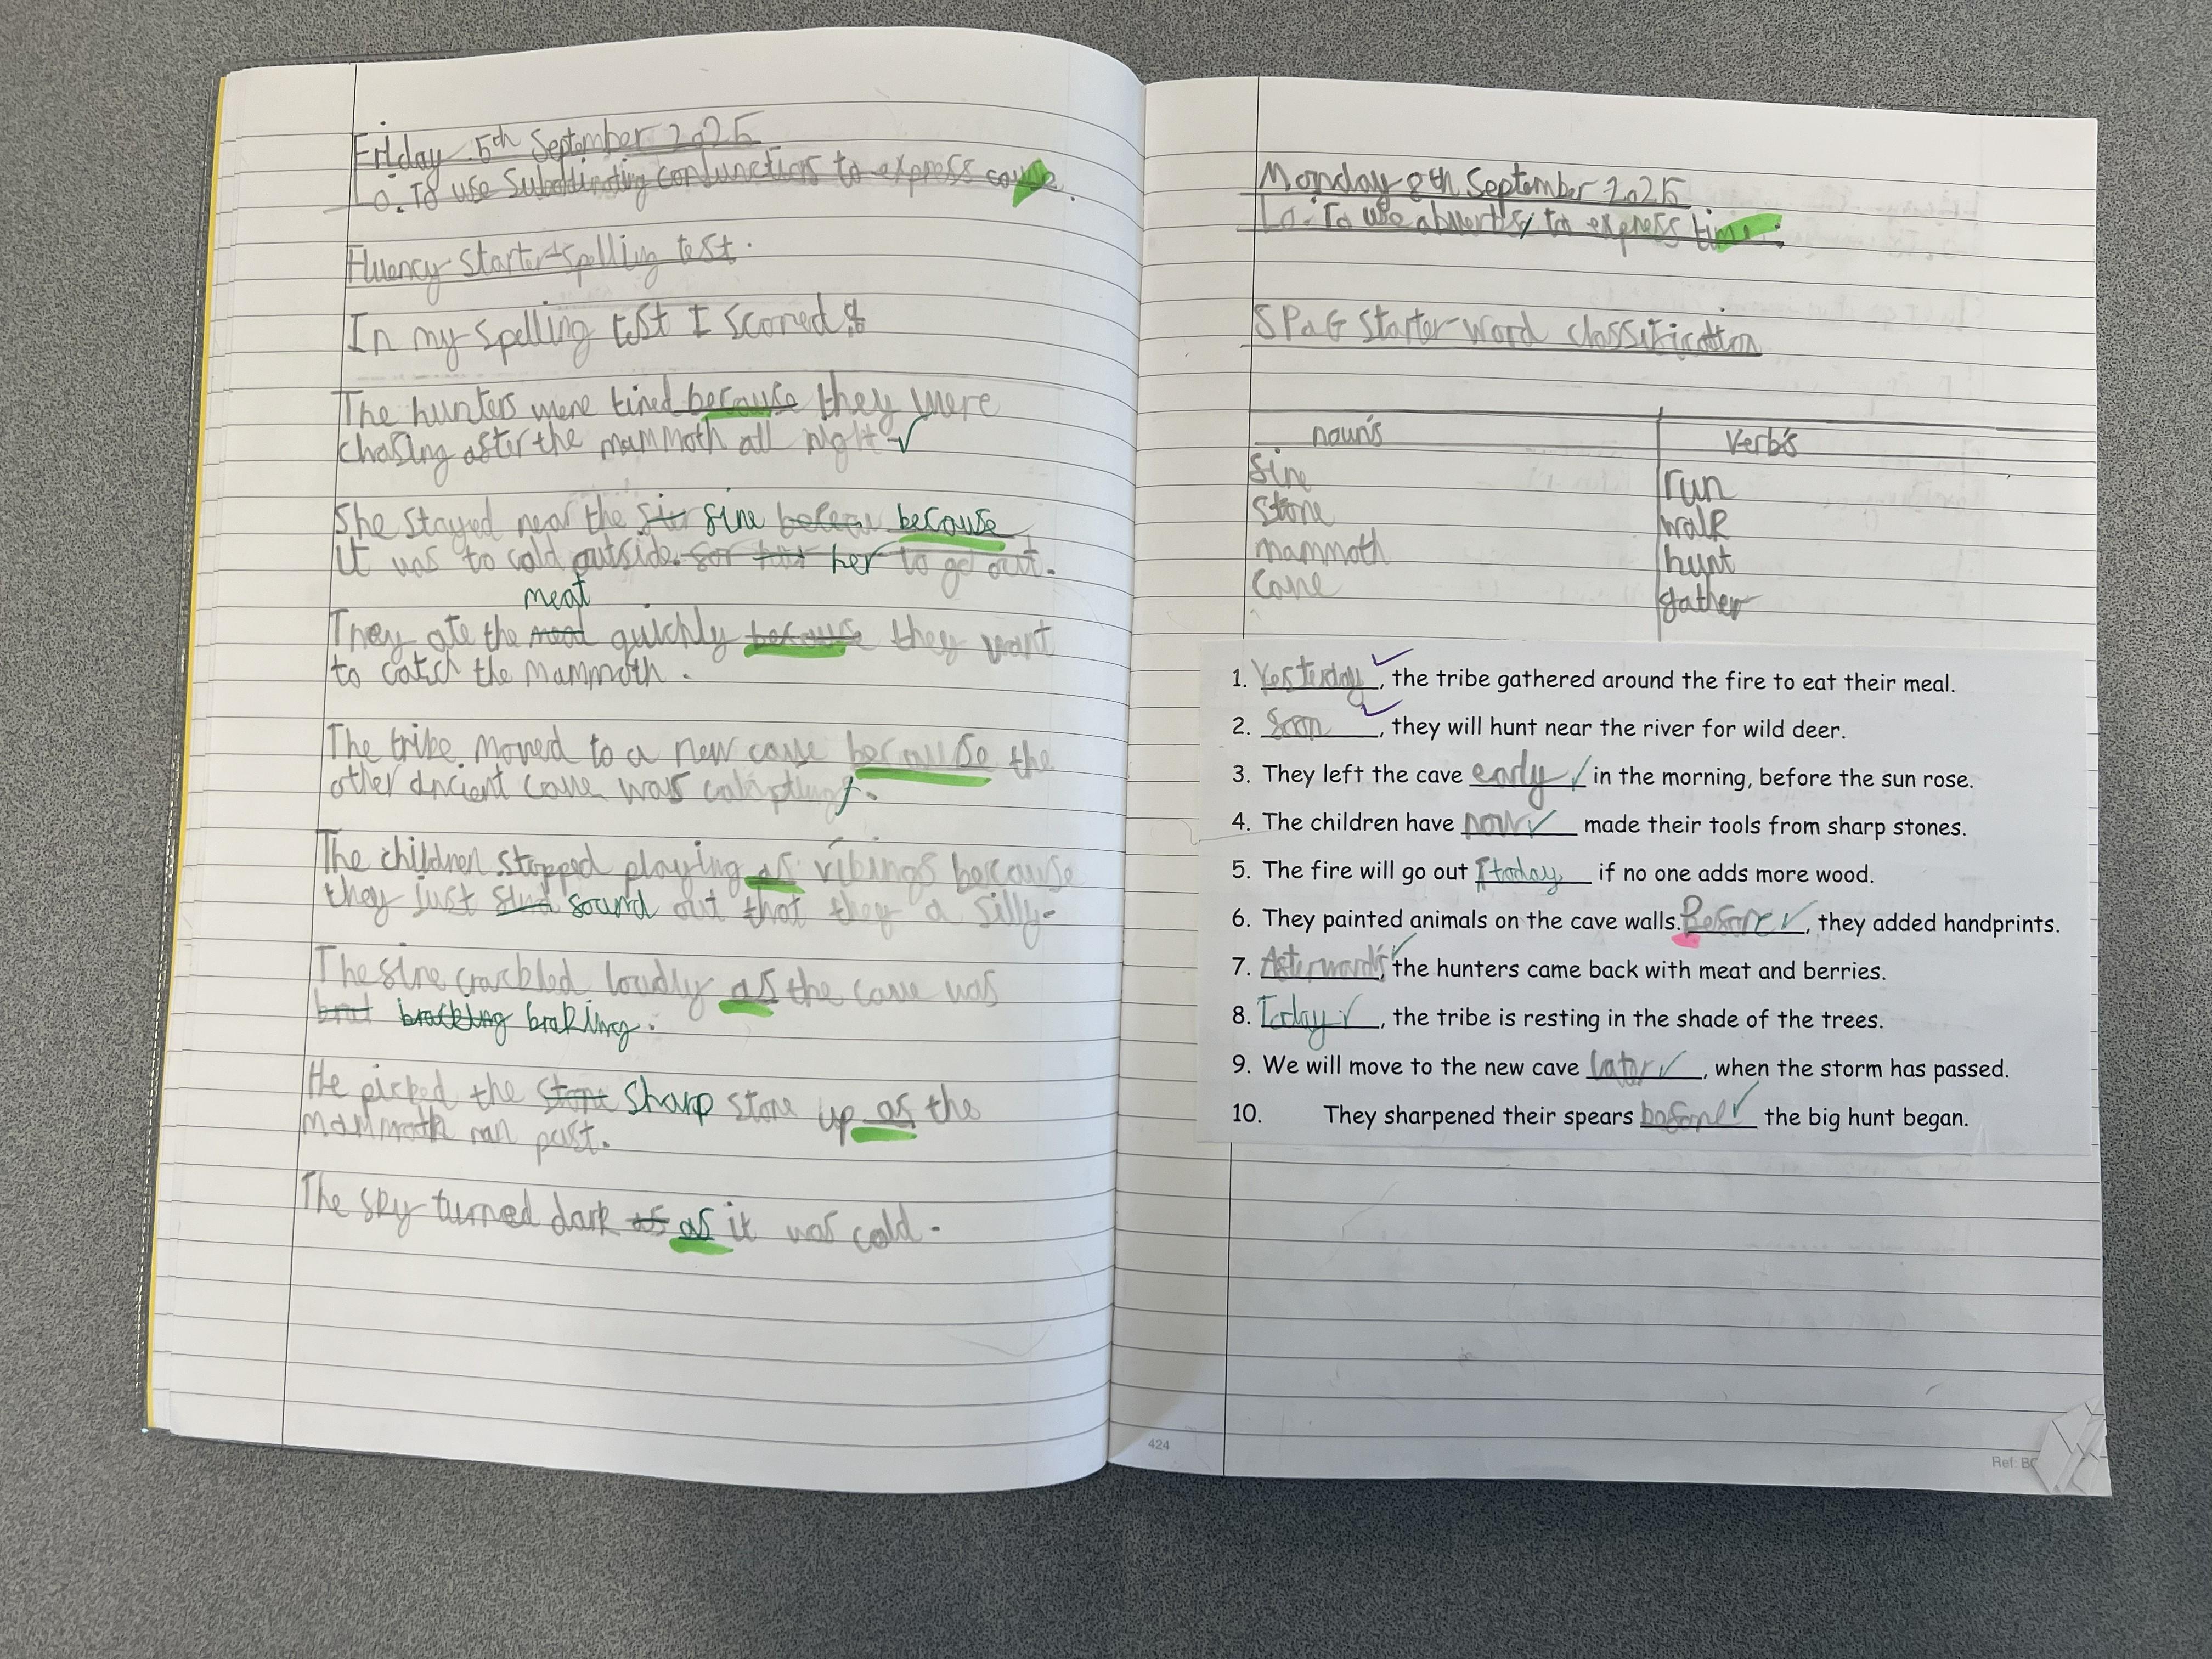 Friday 5th September 2025
Lo: To use Subordinating conjunctions to express cause.
Fluency starter-spelling test.
In my spelling test I scored 8
The hunters were tired because they were
chasing after the mammoth all night
She stayed near the fire because
It was to cold outside. for her to go out.
meat
They ate the quickly because they want
to catch the mammoth.
The tribe moved to a new cave because the
other ancient cave was
The children stopped playing as vikings because
they just found out that they a silly.
The fire crackled loudly as the cave was
braking.
He picked the stone sharp stone up as the
mammoth ran past.
The sky turned dark as as it was cold.
Monday 8th September 2025
Lo: To use abverbs to express time.
SPaG starter-word classification
noun's verb's
fire run
stone walk
mammoth hunt
cave gather
1. Yesterday, the tribe gathered around the fire to eat their meal.
2. Soon, they will hunt near the river for wild deer.
3. They left the cave early in the morning, before the sun rose.
4. The children have now made their tools from sharp stones.
5. The fire will go out today if no one adds more wood.
6. They painted animals on the cave walls. Before, they added handprints.
7. Afterwards, the hunters came back with meat and berries.
8. Today, the tribe is resting in the shade of the trees.
9. We will move to the new cave later, when the storm has passed.
10. They sharpened their spears before the big hunt began.
424
Ref: BC